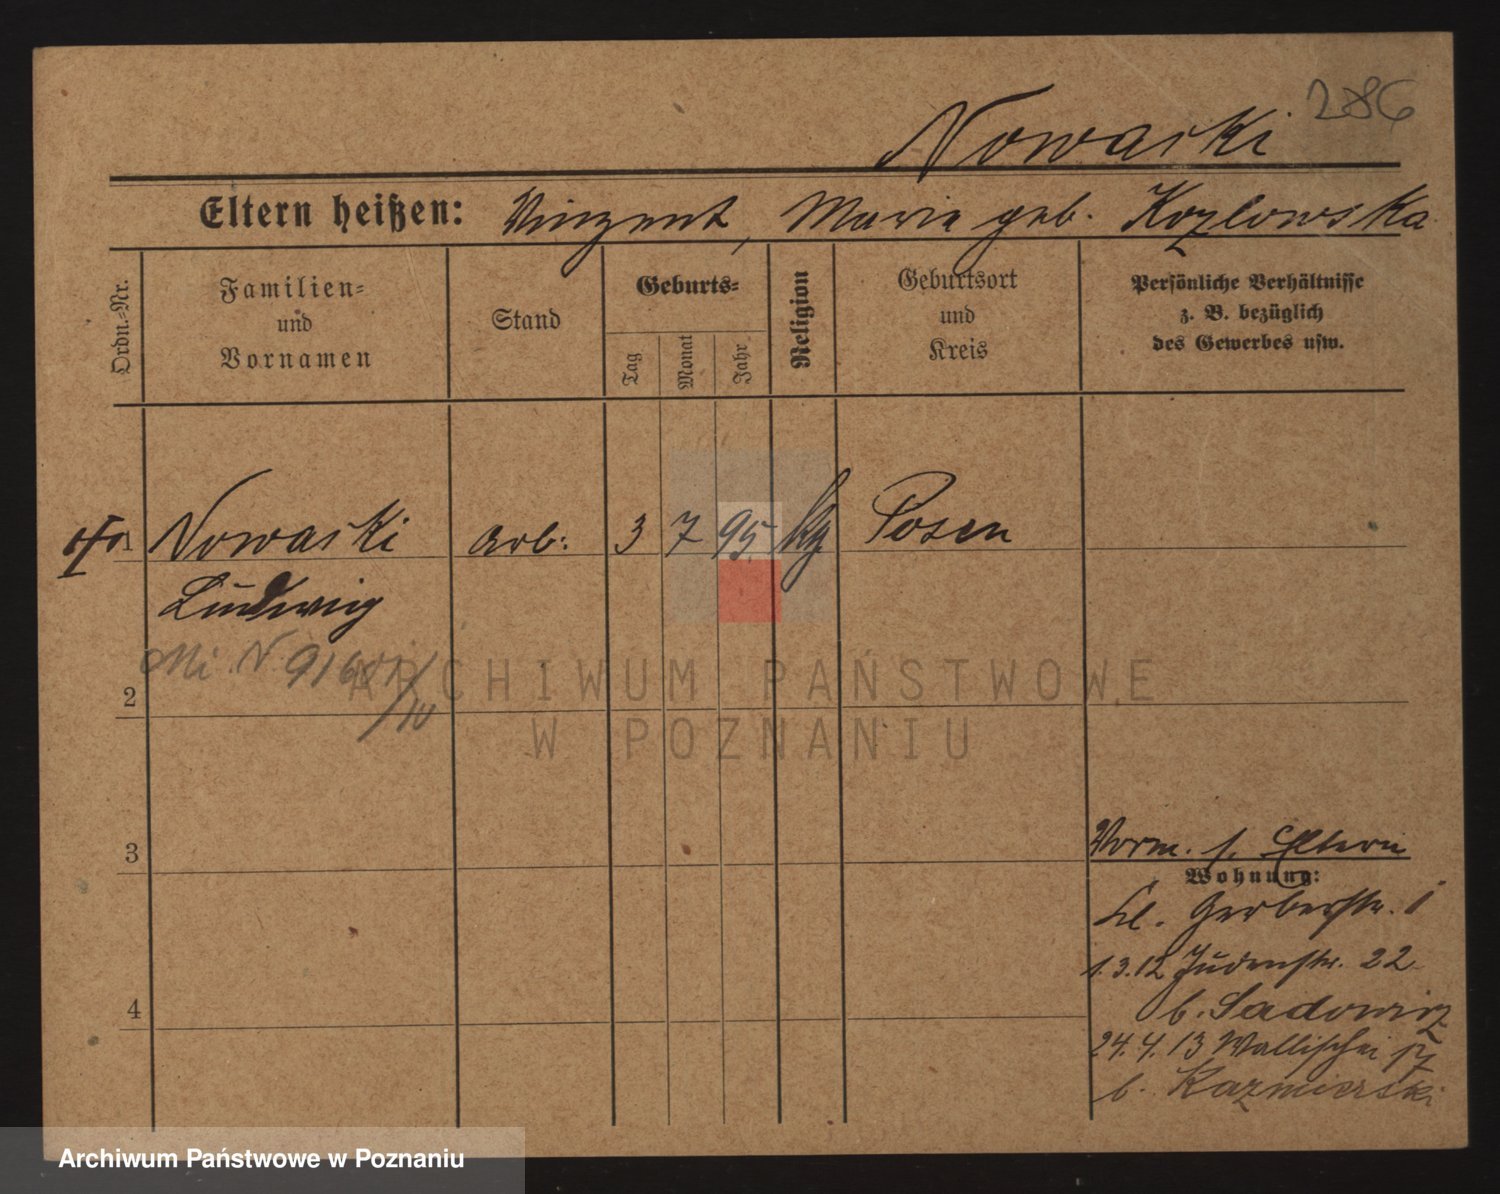 286
Nowaski
Eltern heißen: Vinzent, Marie geb. Kozlowska
Ordn.-Nr.
Familien-
und
Vornamen
Stand
Geburts-
Tag
Monat
Jahr
Religion
Geburtsort
und
Kreis
Persönliche Verhältnisse
z. B. bezüglich
des Gewerbes usw.
1 Nowaski Arb. 3 7 95. Posen
Ludwig
2
3
4
Vorm. s. Eltern
Wohnung:
Kl. Gerberstr. 1
1.3.12 Judenstr. 22
b. Sadowicz
24.4.13 Wallischei
b. Kazmierski
ARCHIWUM PAŃSTWOWE
W POZNANIU
Archiwum Państwowe w Poznaniu